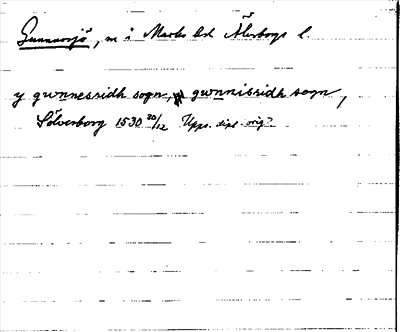 Gunnarsjö, sn i Marks hd Älvsborgs l.
y gwnnessridh sogn, gwnnissridh sogn,
Sölvesborg 1530 20/12 Upps. dipl. orig?